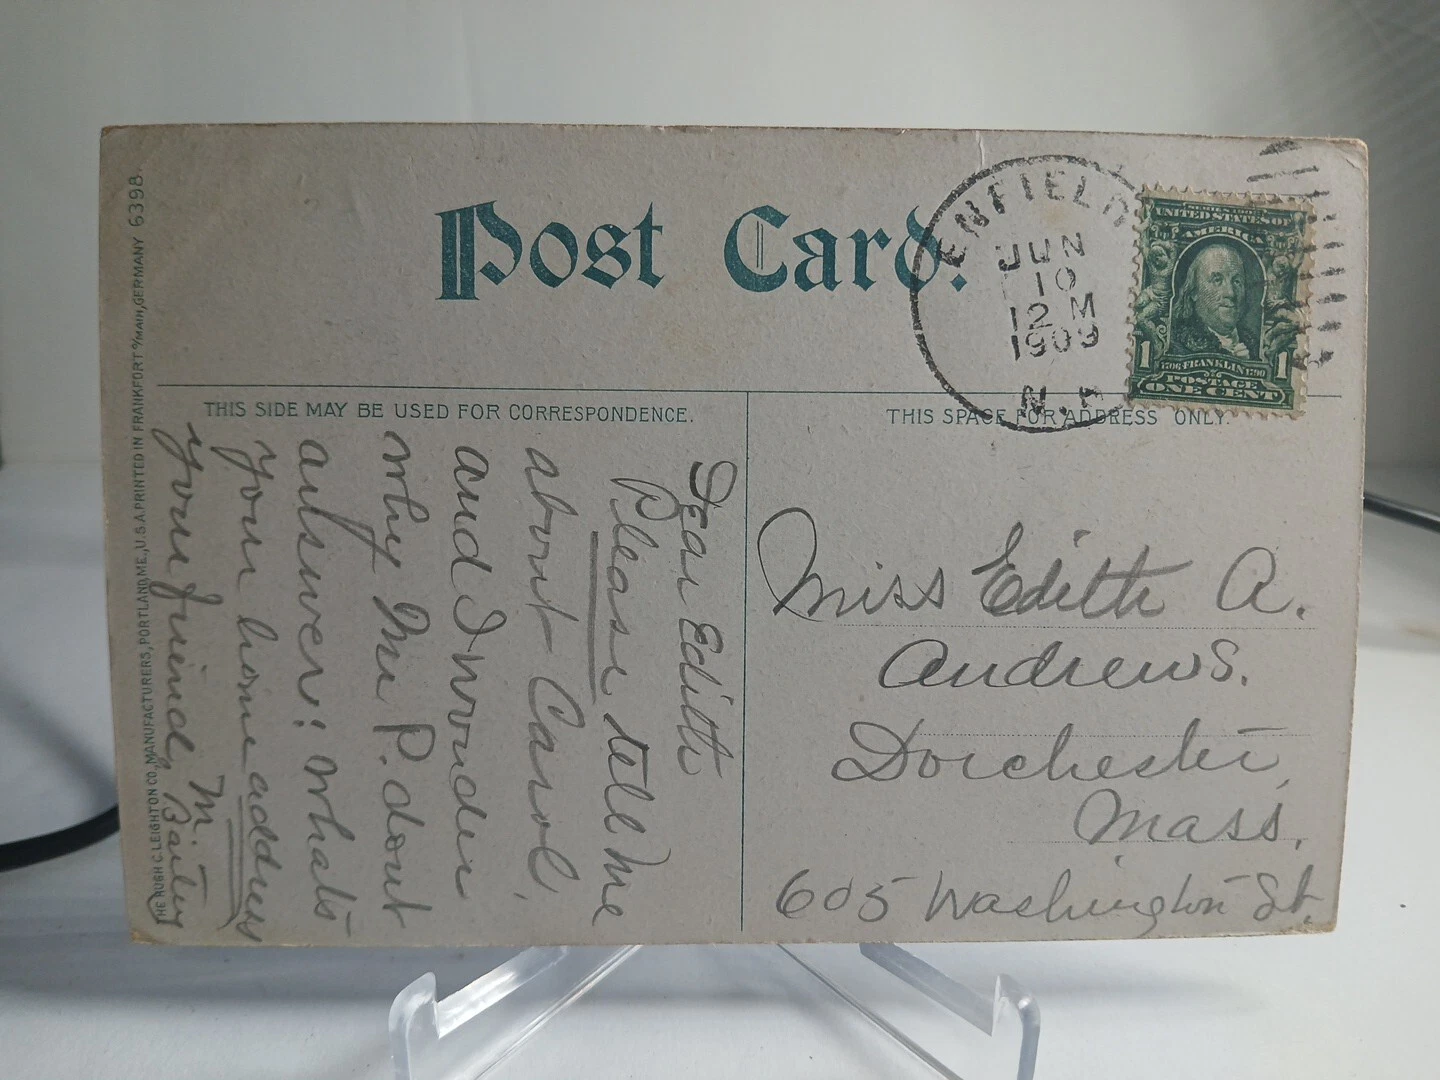 Post Card.
ENFIELD
JUN
10
12 M
1909
N.H.
SERIES 1902
UNITED STATES OF
AMERICA
1 1
1706 FRANKLIN 1790
POSTAGE
ONE CENT
THIS SIDE MAY BE USED FOR CORRESPONDENCE.
THIS SPACE FOR ADDRESS ONLY.
Dear Edith
Please tell me
about Carol,
and I wonder
why Mrs P. dont
answer? Whats
your home address
your friend,
M.
Miss Edith A.
Andrews.
Dorchester,
Mass.
605 Washington St.
THE HUGH C. LEIGHTON CO., MANUFACTURERS, PORTLAND, ME., U.S.A. PRINTED IN FRANKFORT O/MAIN, GERMANY 6398.